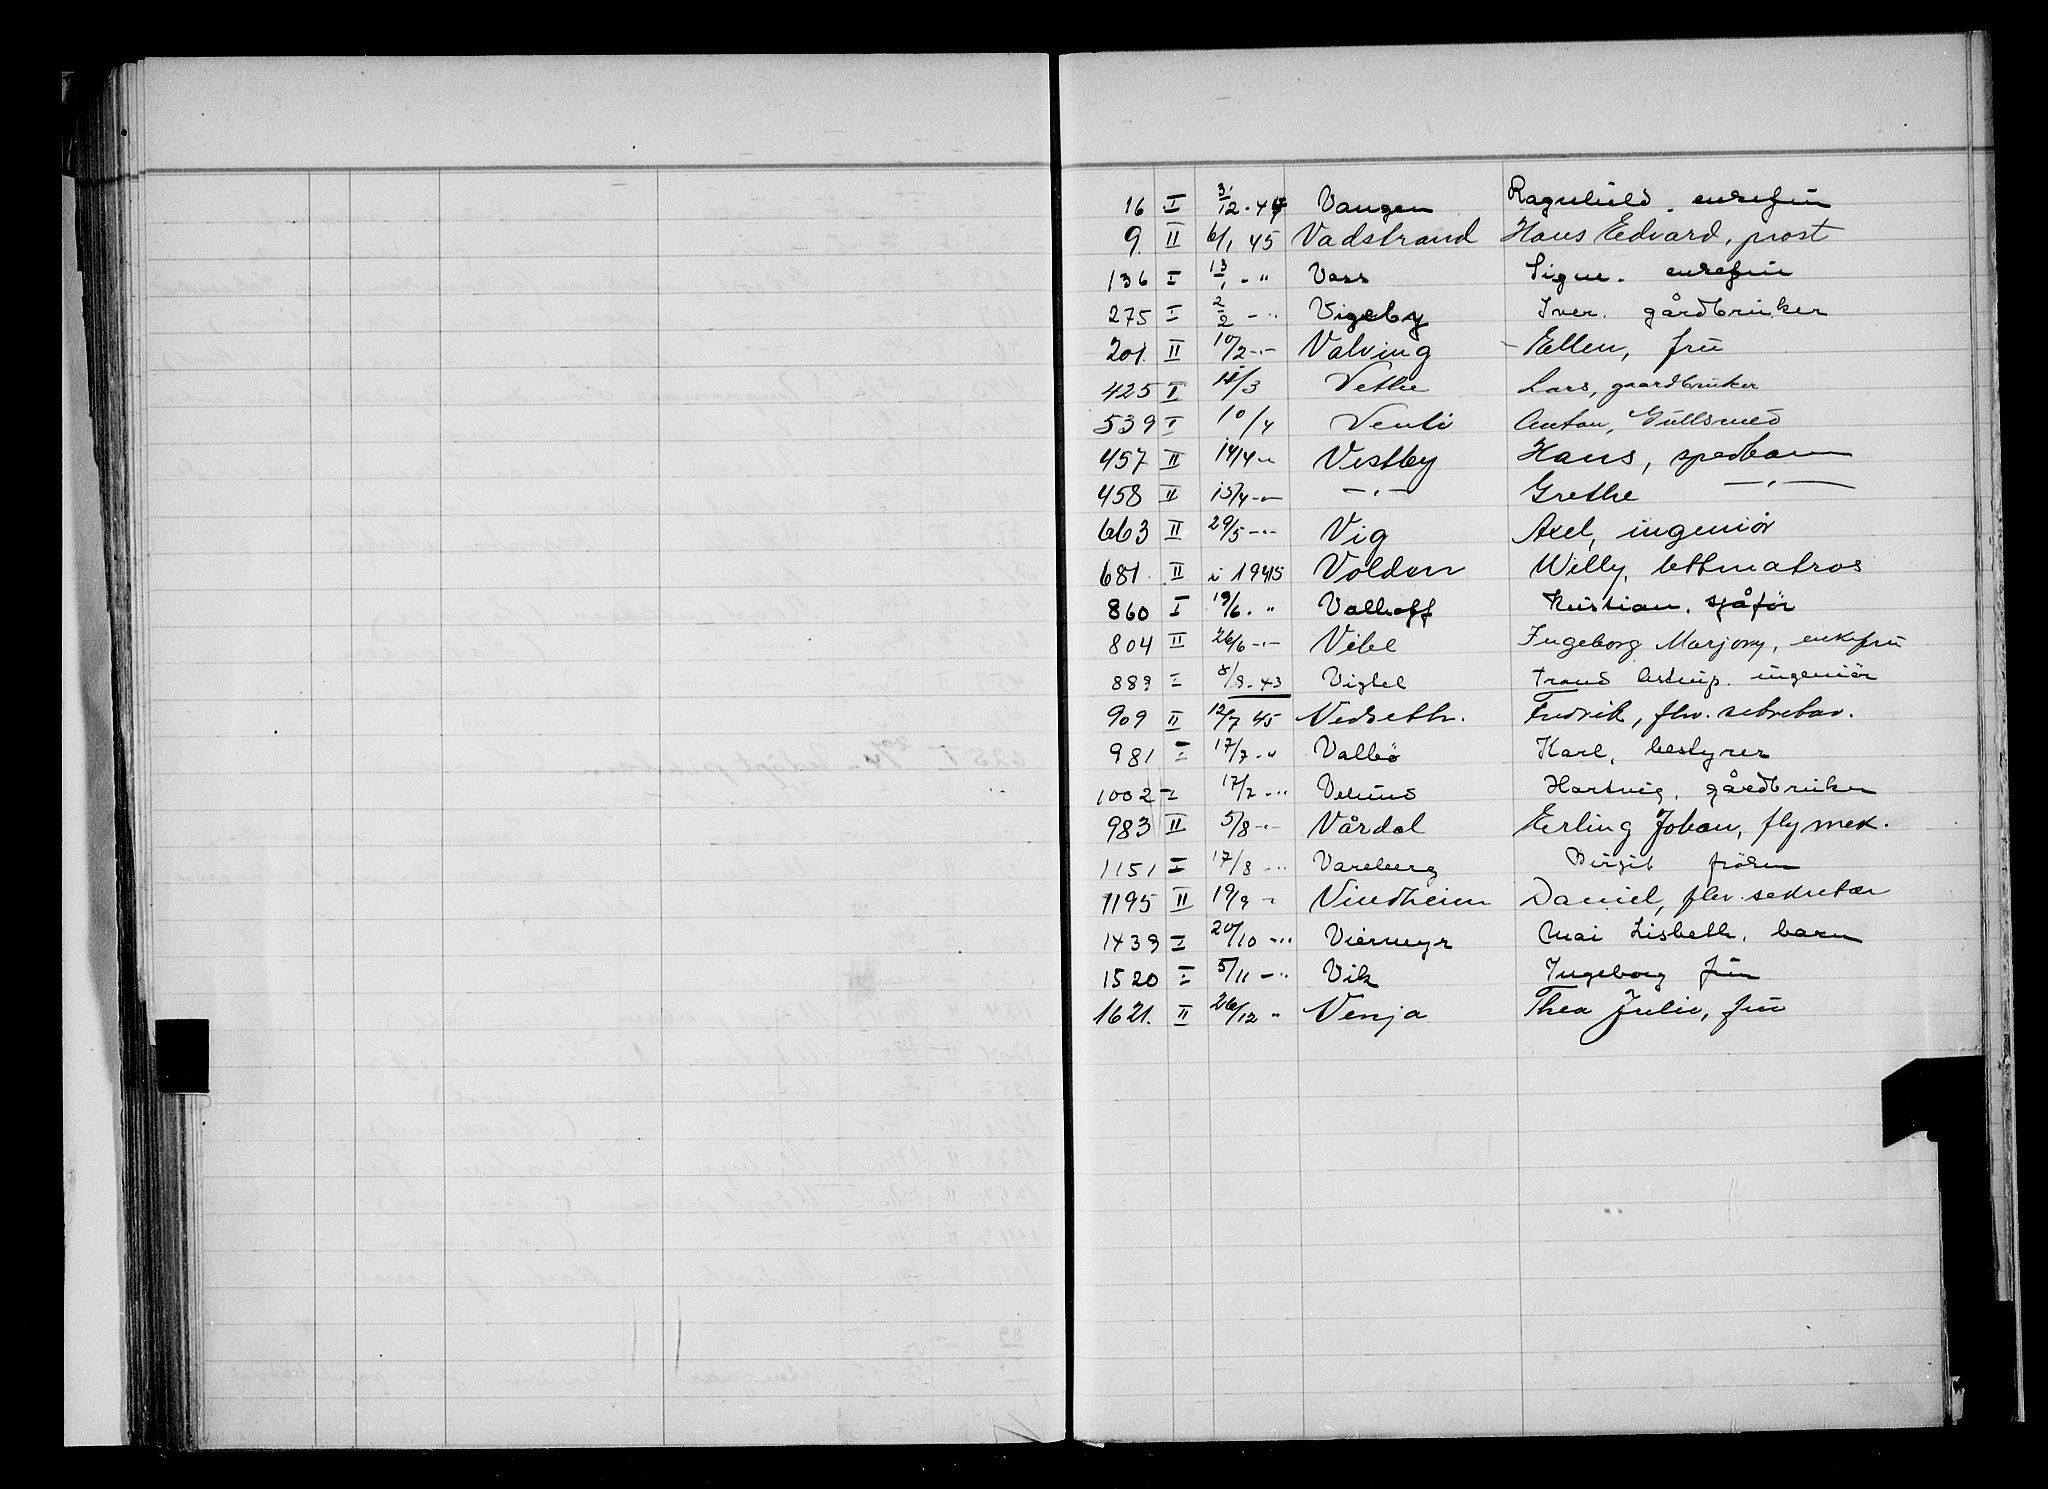 16 I 3/12-44 Vangen Ragnhild. enkefru
9. II 6/1 45 Vadstrand Hans Edvard, prost
136 I 13/1 - " Vass Signe. enkefru
275 I 2/2 - " Vigeby Iver. gårdbruker
201. II 10/2 -"- Valving Ellen, frü
425 I /3 Vethe Lars, gaardbruker
539 I 10/4 Venli Anton, Gullsmed
457 II 14/4 -"- Vestby Hans, spedbarn
458 II 15/4 -"- -"- Grethe -"-
663 II 29/5 -"- Vig Axel, ingeniør
681. II i 1945 Volden Willy, lettmatros
860 I 19/6. " Valhoff Kristian. sjåför
804 II 26/6 -"- Vibe Ingeborg Marjory, enkefru
889 I 8/9-43 Vigtel Trond Astrup. ingeniör
909 II 12/7 45 Vedseth. Fredrik, fhv. sekretær.
981 I 17/7 -" Valbö Karl, bestyrer
1002 I 17/7 -"- Velund Hartvig, gårdbruker
983 II 5/8 -"- Vårdal Erling Johan, flymek.
1151 I 17/8 -"- Vareberg Birgit fröken
1195 II 19/9 " Vindheim Daniel, fhv. sekretær
1439 I 20/10 -"- Viermyr Mai Lisbeth, barn
1520 I 5/11 -" Vik Ingeborg frü
1621. II 26/12 " Venja Thea Julie, frü